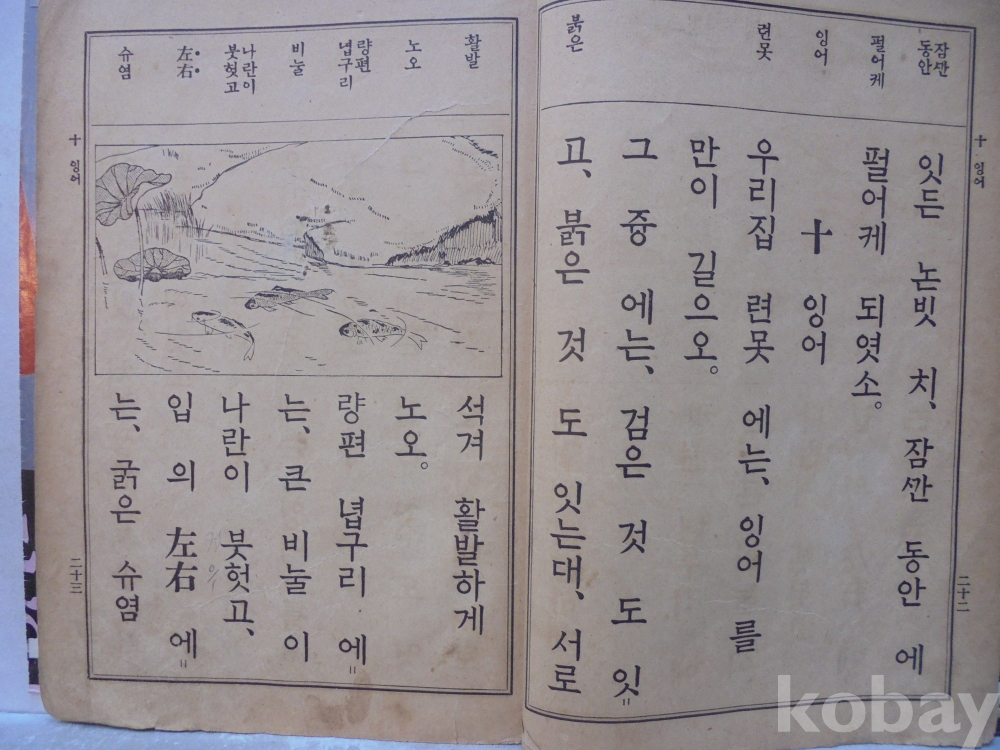 十 잉어
二十二
잠ᄭᅡᆫ
동안
펄어케
잉어
련못
붉은
잇든 논빗 치、잠ᄭᅡᆫ 동안 에
펄어케 되엿소。
十 잉어
우리집 련못 에는、잉어 를
만이 길으오。
그 즁 에는、검은 것 도 잇=
고、붉은 것 도 잇는대、서로
활발
노오
량편
녑구리
비눌
나란이
붓헛고
左右
슈염
석겨 활발하게
노오。
량편 녑구리 에=
는、큰 비눌 이
나란이 붓헛고、
입 의 左右 에=
는、굵은 슈염
十 잉어
二十三
kobay